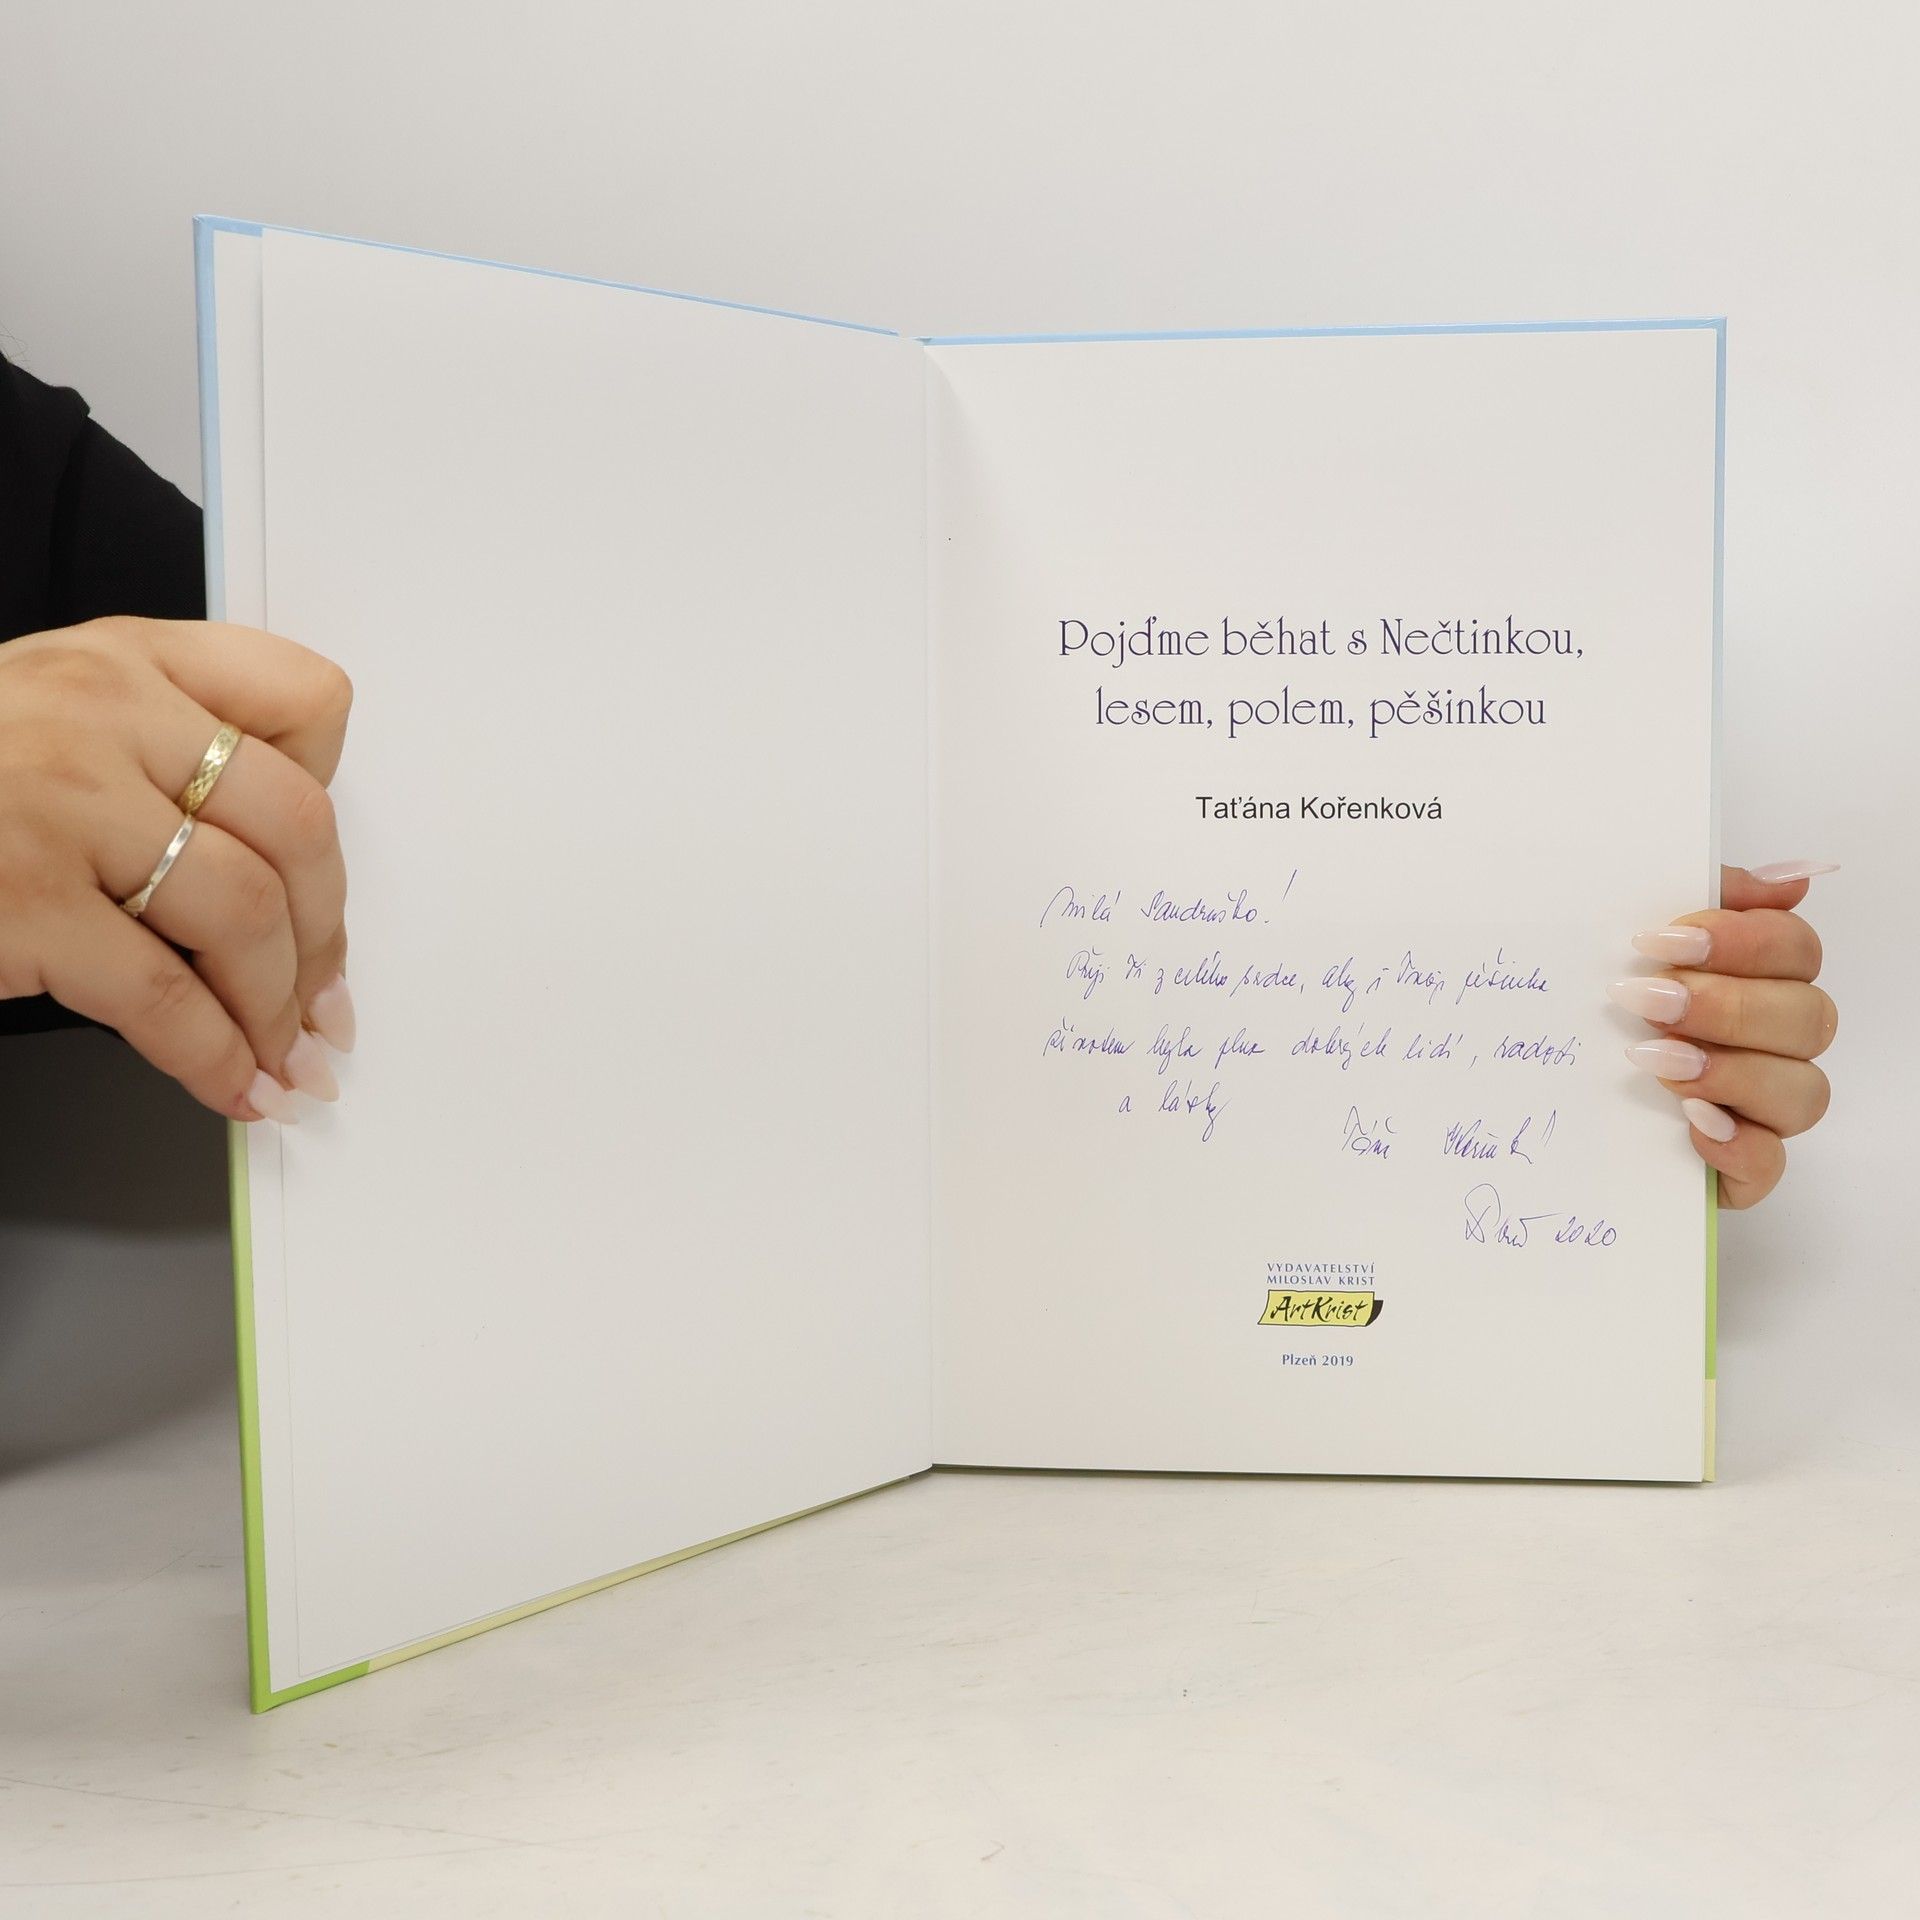 Pojďme běhat s Nečtinkou,
lesem, polem, pěšinkou
Taťána Kořenková
Milá Sandruško!
Přeji Ti z celého srdce, aby i Tvoje pěšinka
životem byla plna dobrých lidí, radosti
a lásky
2020
VYDAVATELSTVÍ
MILOSLAV KRIST
ArtKrist
Plzeň 2019